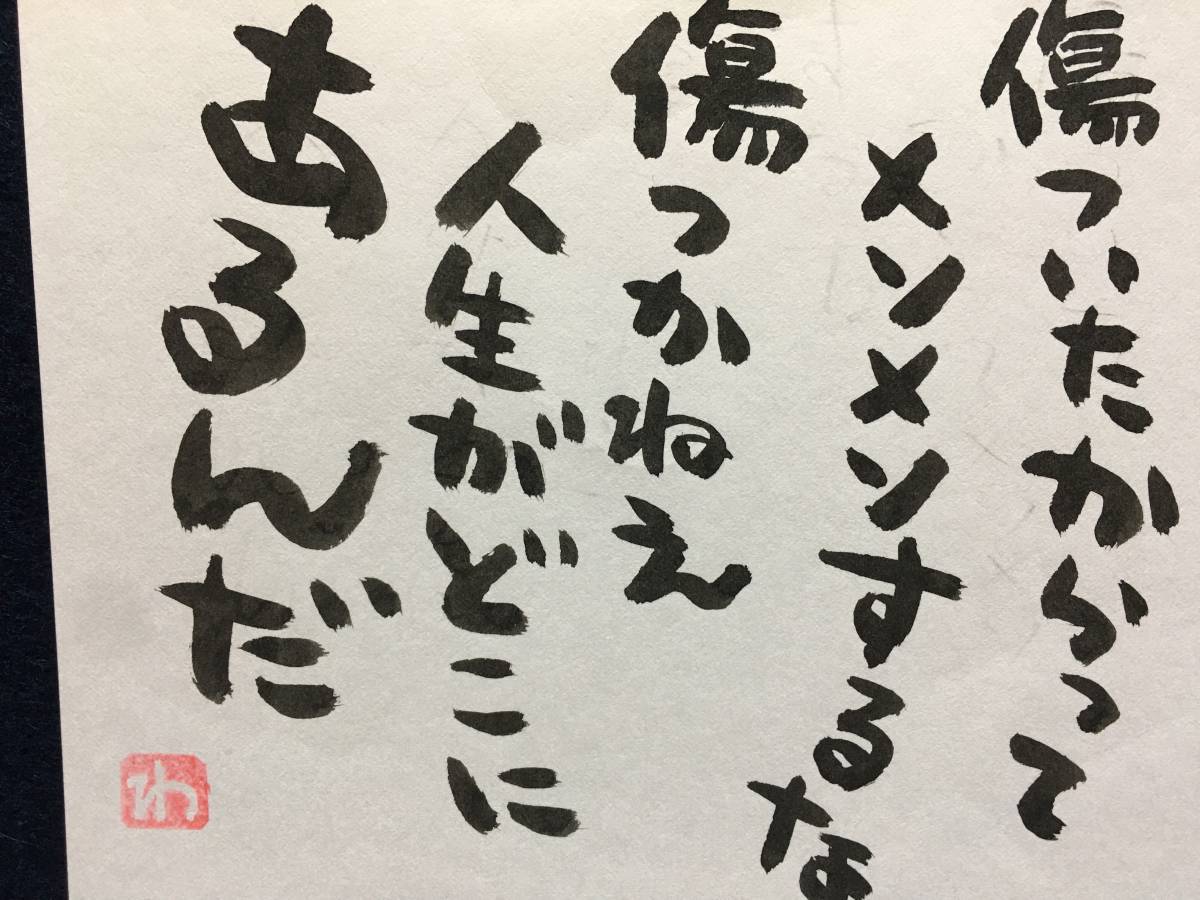 傷ついたからって
メソメソするな
傷つかねえ
人生がどこに
あるんだ
わ